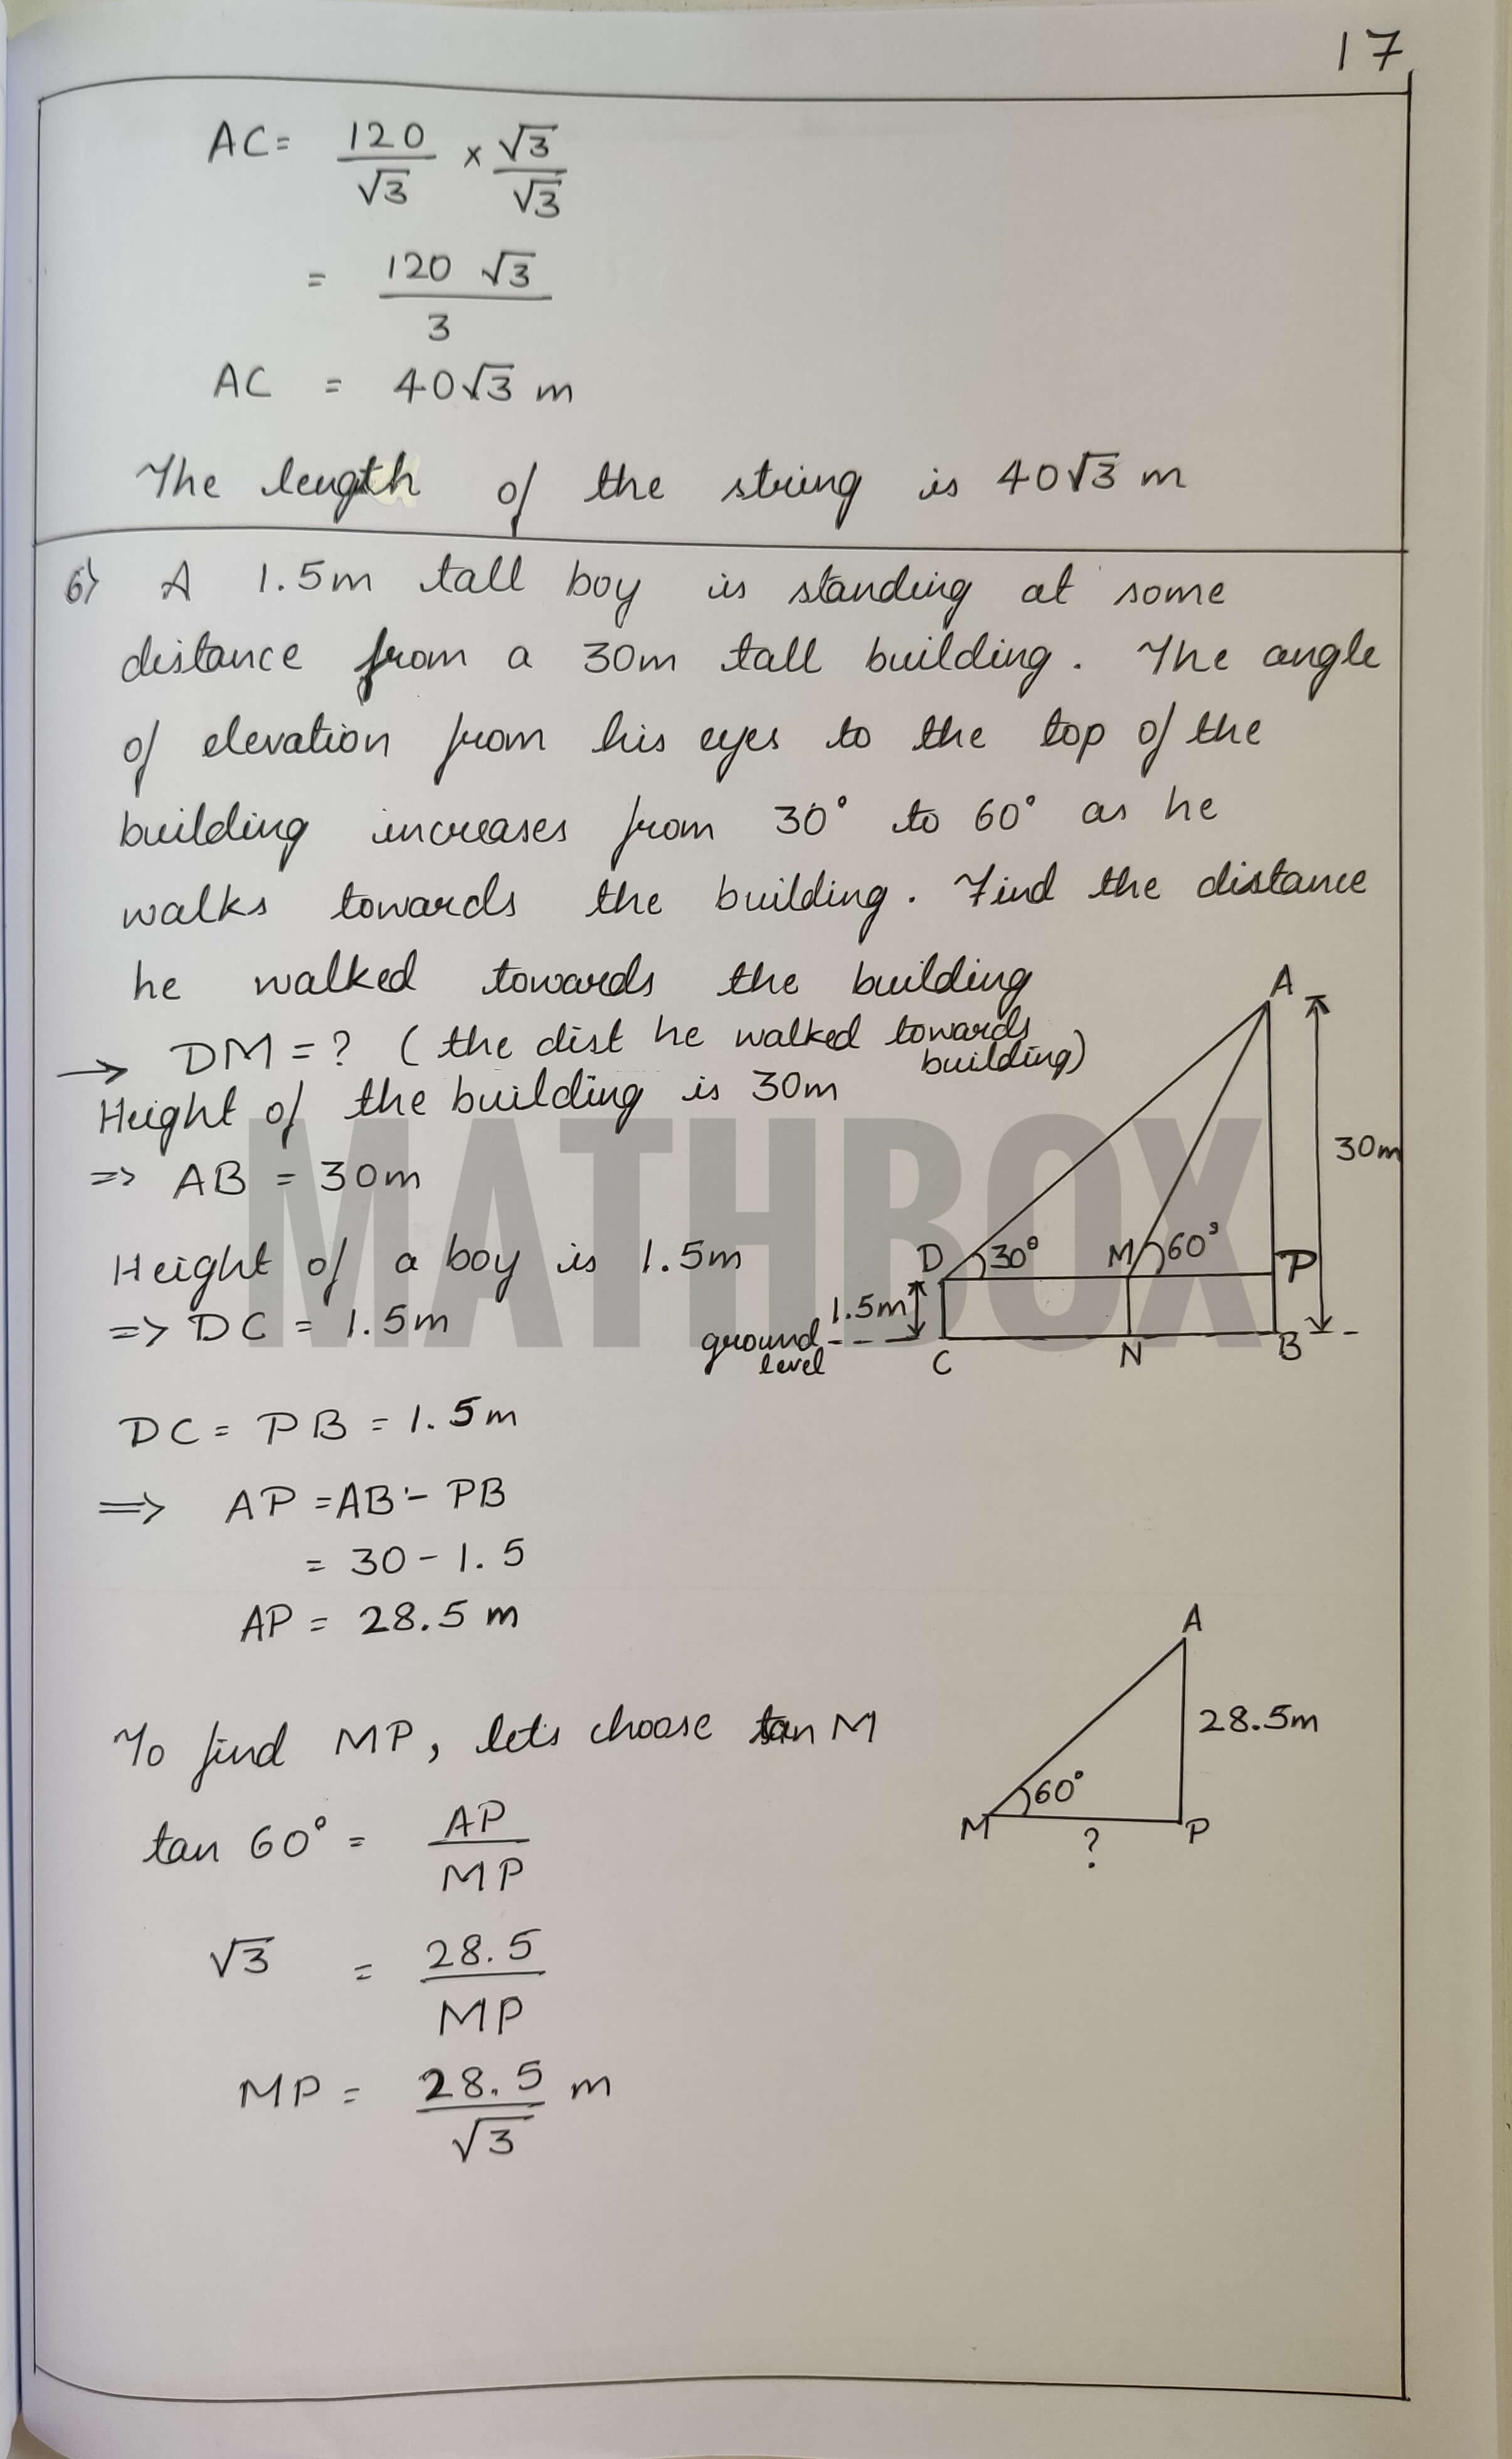 17
AC = 120/√3 × √3/√3
= 120 √3/3
AC = 40√3 m
The length of the string is 40√3 m
6) A 1.5m tall boy is standing at some
distance from a 30m tall building. The angle
of elevation from his eyes to the top of the
building increases from 30° to 60° as he
walks towards the building. Find the distance
he walked towards the building
→ DM = ? (the dist he walked towards
building)
Height of the building is 30m
=> AB = 30m
Height of a boy is 1.5m
=> DC = 1.5m
A
30m
D 30° M 60° P
1.5m
ground
level
C N B
MATHBOX
DC = PB = 1.5m
=> AP = AB - PB
= 30 - 1.5
AP = 28.5 m
To find MP, let's choose tan M
tan 60° = AP/MP
√3 = 28.5/MP
MP = 28.5/√3 m
A
28.5m
60°
M ? P